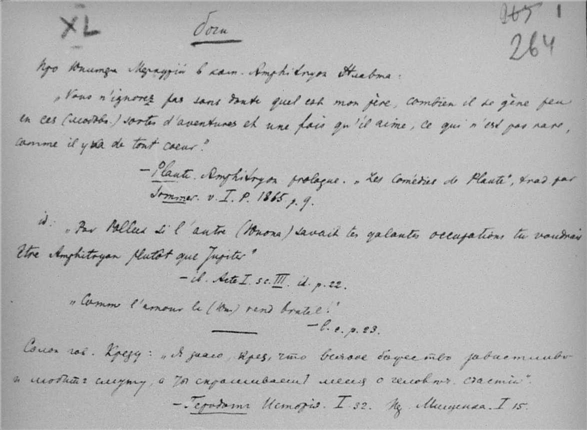 XL
боги
965 1
264
Про Юпитера Меркурій в ком. Amphitryon Плавта:
„Vous n'ignorez pas sans doute quel est mon père, combien il se gêne peu
en ces (любовн.) sortes d'aventures et une fois qu'il aime, ce qui n'est pas rare,
comme il y va de tout coeur."
— Plaute Amphitryon prologue. „Les Comédies de Plaute", trad par
Sommer. v. I. P. 1865 p. 9.
id: „Par Pollux si l'autre (Юнона) savait tes galantes occupations tu voudrais
être Amphitryon plutôt que Jupiter"
— id. Acte I. sc. III. id. p. 22.
„Comme l'amour le (Юп.) rend brutal!"
— l. c. p. 23.
Солон гов. Крезу: „Я знаю, Крез, что всякое божество завистливо
и любит смуту, а ты спрашиваешь меня о человѣч. счастіи".
— Геродотъ Исторія. I 32. Пер. Мищенка. I 15.